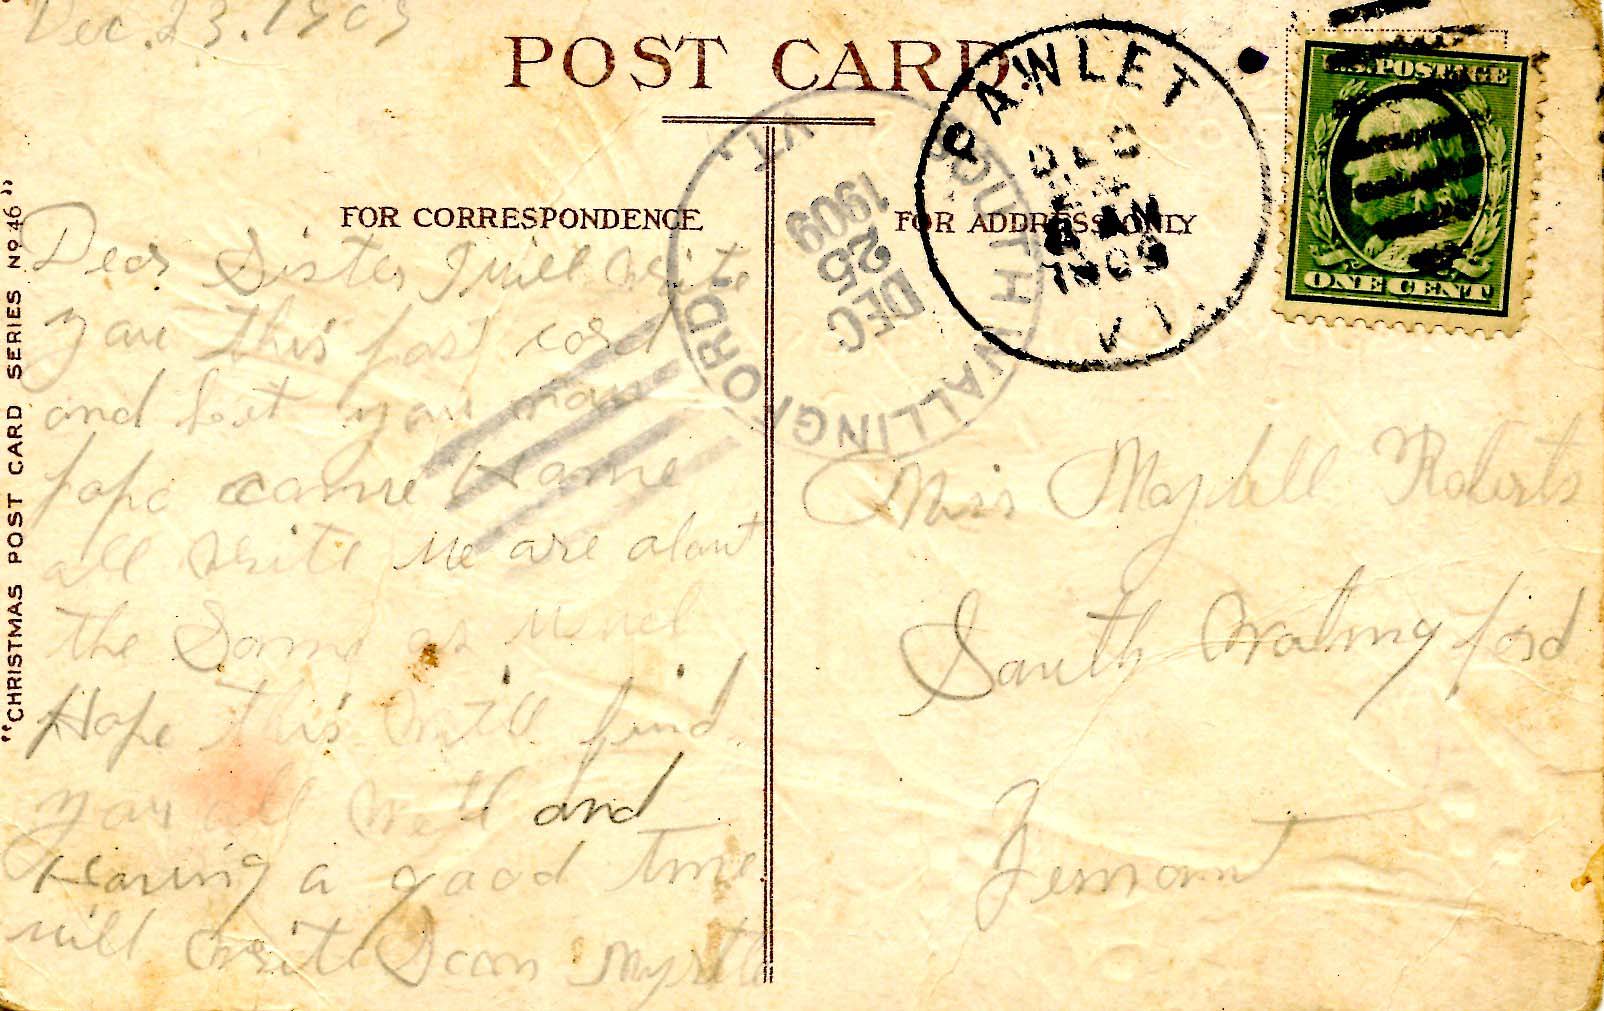 Dec. 23. 1909
POST CARD
PAWLET
DEC
24
1909
VT.
U.S. POSTAGE
ONE CENT
SOUTH WALLINGFORD, VT.
DEC
25
1909
"CHRISTMAS POST CARD SERIES No 46"
FOR CORRESPONDENCE
FOR ADDRESS ONLY
Dear Sister I will write
you this post card
and let you now
papa came Home
all write we are about
the Same as usuel
Hope this will find
you all well and
Having a good time
will write Soon Myrtle
Miss Maybell Roberts
South Wallingford
Vermont